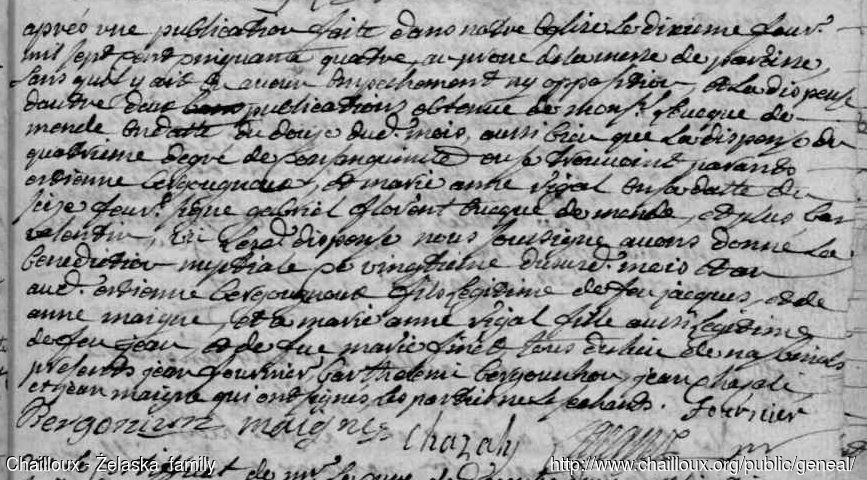 aprés une publication faite dans notre eglise le dixieme feur.
mil sept cent cinquante quatre, au prone de la messe de paroisse,
sans quil y ait eu aucun empechement ny opposition, et la dispense
dautre deux publications obtenue de Mons.r leveque de
mende en datte du douze dud. mois, aussi bien que la dispense du
quatrieme degré de consanguinité ou se trouvoint parants
estienne bergougnoux, et marie anne vigal en sa datte du
seize feur. signé gabriel florent eveque de mende, et plus bas
nous soussigné avons donné la
benediction nuptiale ce vingtieme dud. mois et an
aud. estienne bergougnoux fils legitime de feu jacques, et de
anne maigne, et a marie anne vigal fille aussi legitime
de feu jean et de feue marie tous du lieu de nasbinals
presents jean fournier, barthelemi bergounhon, jean chazali
et jean maigne qui ont signés, les parties ne le sachants. fournier
Bergounhon maigne chazaly
de mr.
Chailloux - Želaskà family
http://www.chailloux.org/public/geneal/